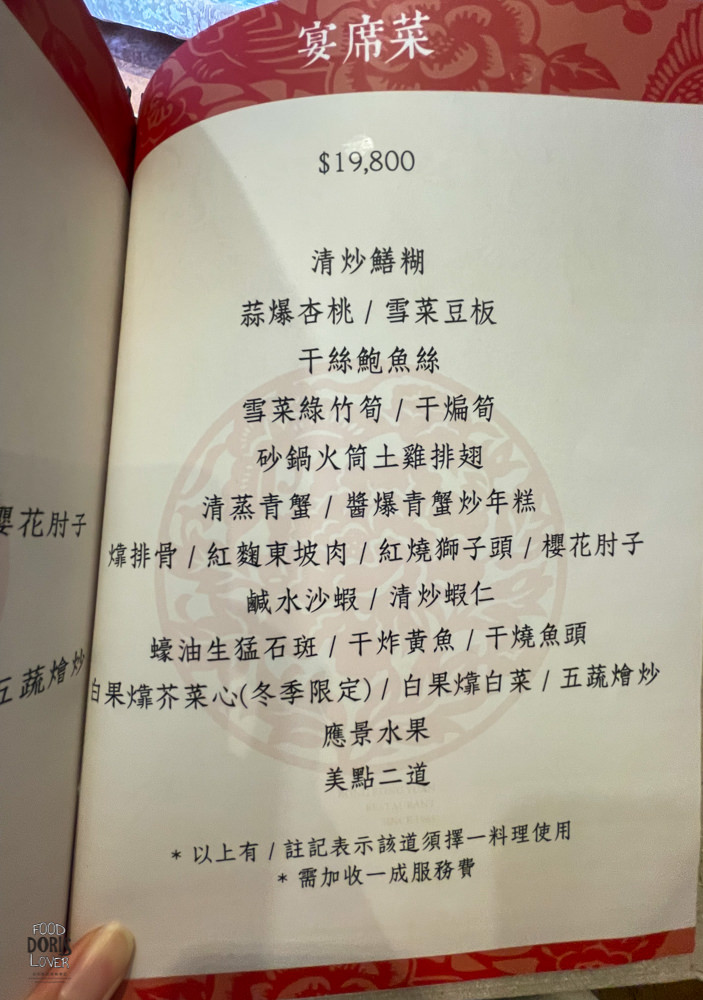 宴席菜
$19,800
清炒鱔糊
蒜爆杏桃 / 雪菜豆板
干絲鮑魚絲
雪菜綠竹筍 / 干煸筍
砂鍋火筒土雞排翅
清蒸青蟹 / 醬爆青蟹炒年糕
㸆排骨 / 紅麴東坡肉 / 紅燒獅子頭 / 櫻花肘子
鹹水沙蝦 / 清炒蝦仁
蠔油生猛石斑 / 干炸黃魚 / 干燒魚頭
白果㸆芥菜心(冬季限定) / 白果㸆白菜 / 五蔬燴炒
應景水果
美點二道
* 以上有 / 註記表示該道須擇一料理使用
* 需加收一成服務費
櫻花肘子
五蔬燴炒
FOOD
DORIS
LOVER